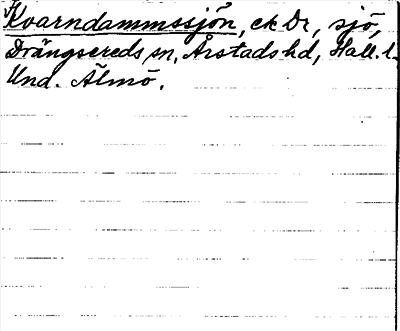 Kvarndammssjön, ek Dr, sjö,
Drängsereds sn, Årstads hd, Hall. l.
Und. Älmö.